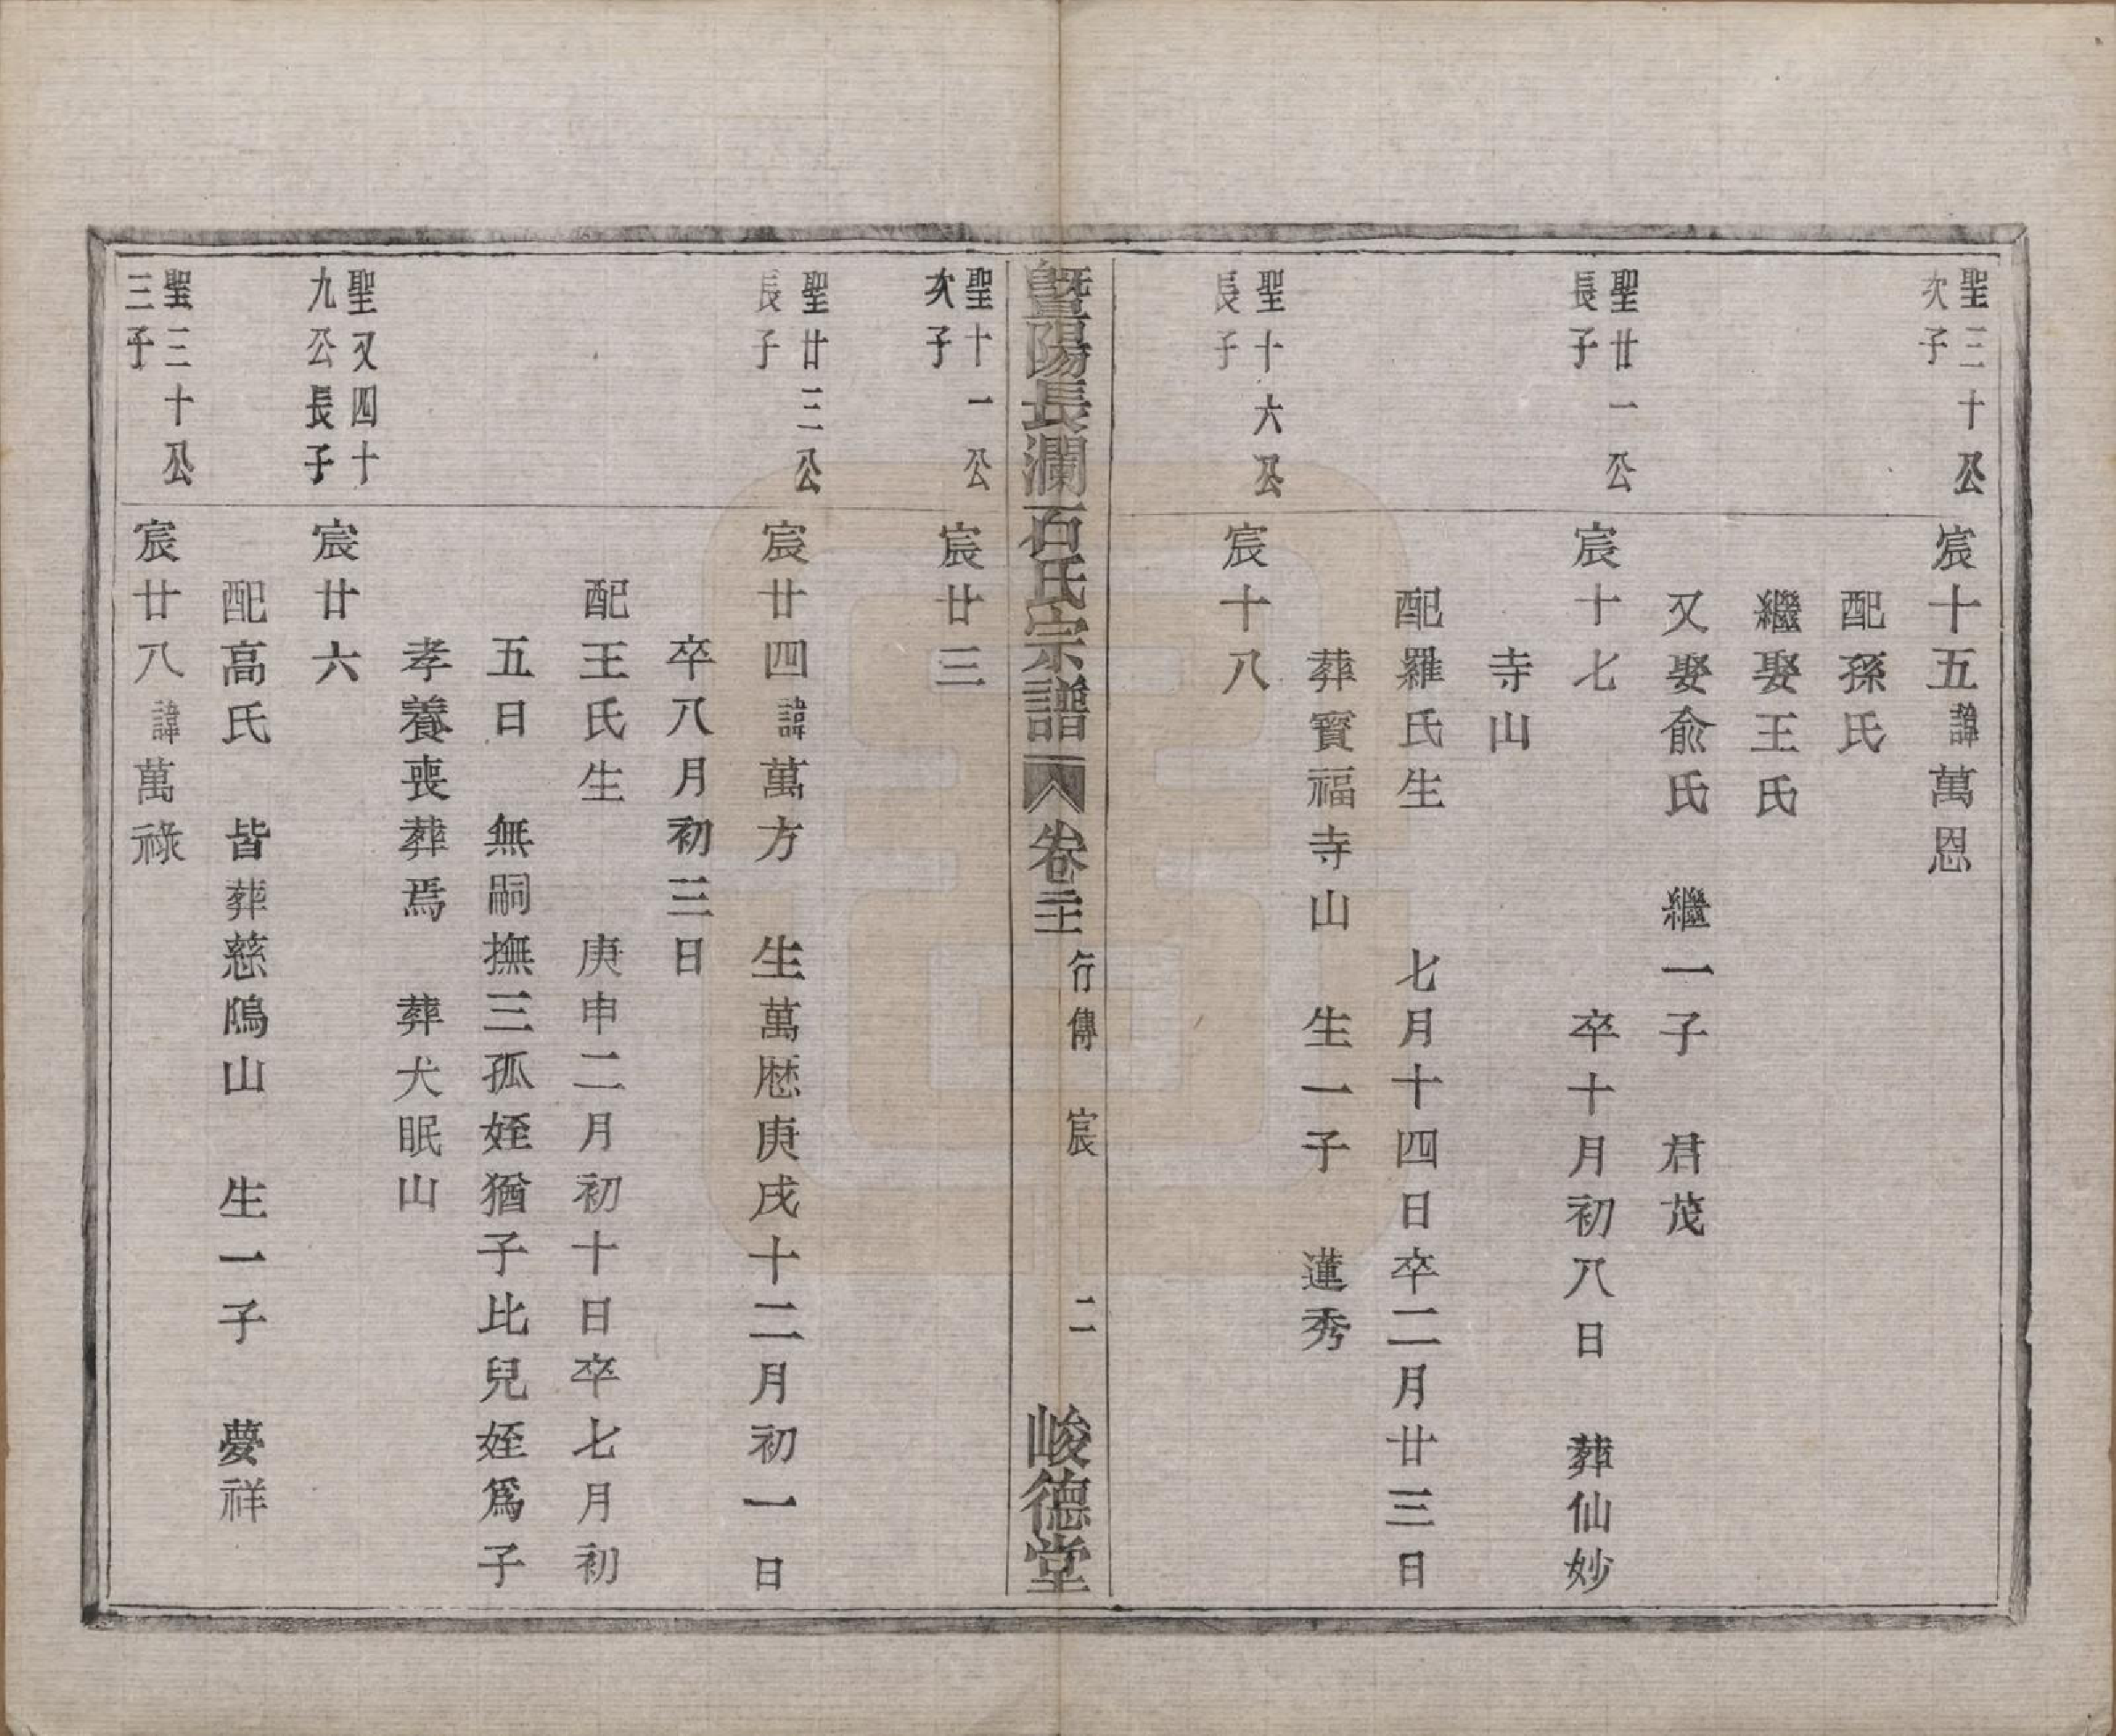 聖三十公
次子
宸十五諱萬恩
配孫氏
繼娶王氏
又娶俞氏　繼一子　君茂
聖廿一公
長子
宸十七　卒十月初八日　葬仙妙
寺山
配羅氏生　七月十四日卒二月廿三日
葬寳福寺山　生一子　蓮秀
聖十六公
長子
宸十八
暨陽長瀾石氏宗譜　卷二十　行傳　宸　二　峻德堂
聖十一公
次子
宸廿三
聖廿三公
長子
宸廿四諱萬方　生萬厯庚戌十二月初一日
卒八月初三日
配王氏生　庚申二月初十日卒七月初
五日　無嗣撫三孤姪猶子比兒姪爲子
孝養喪葬焉　葬犬眠山
聖又四十
九公長子
宸廿六
配高氏　皆葬慈隝山　生一子　夢祥
聖三十公
三子
宸廿八諱萬祿